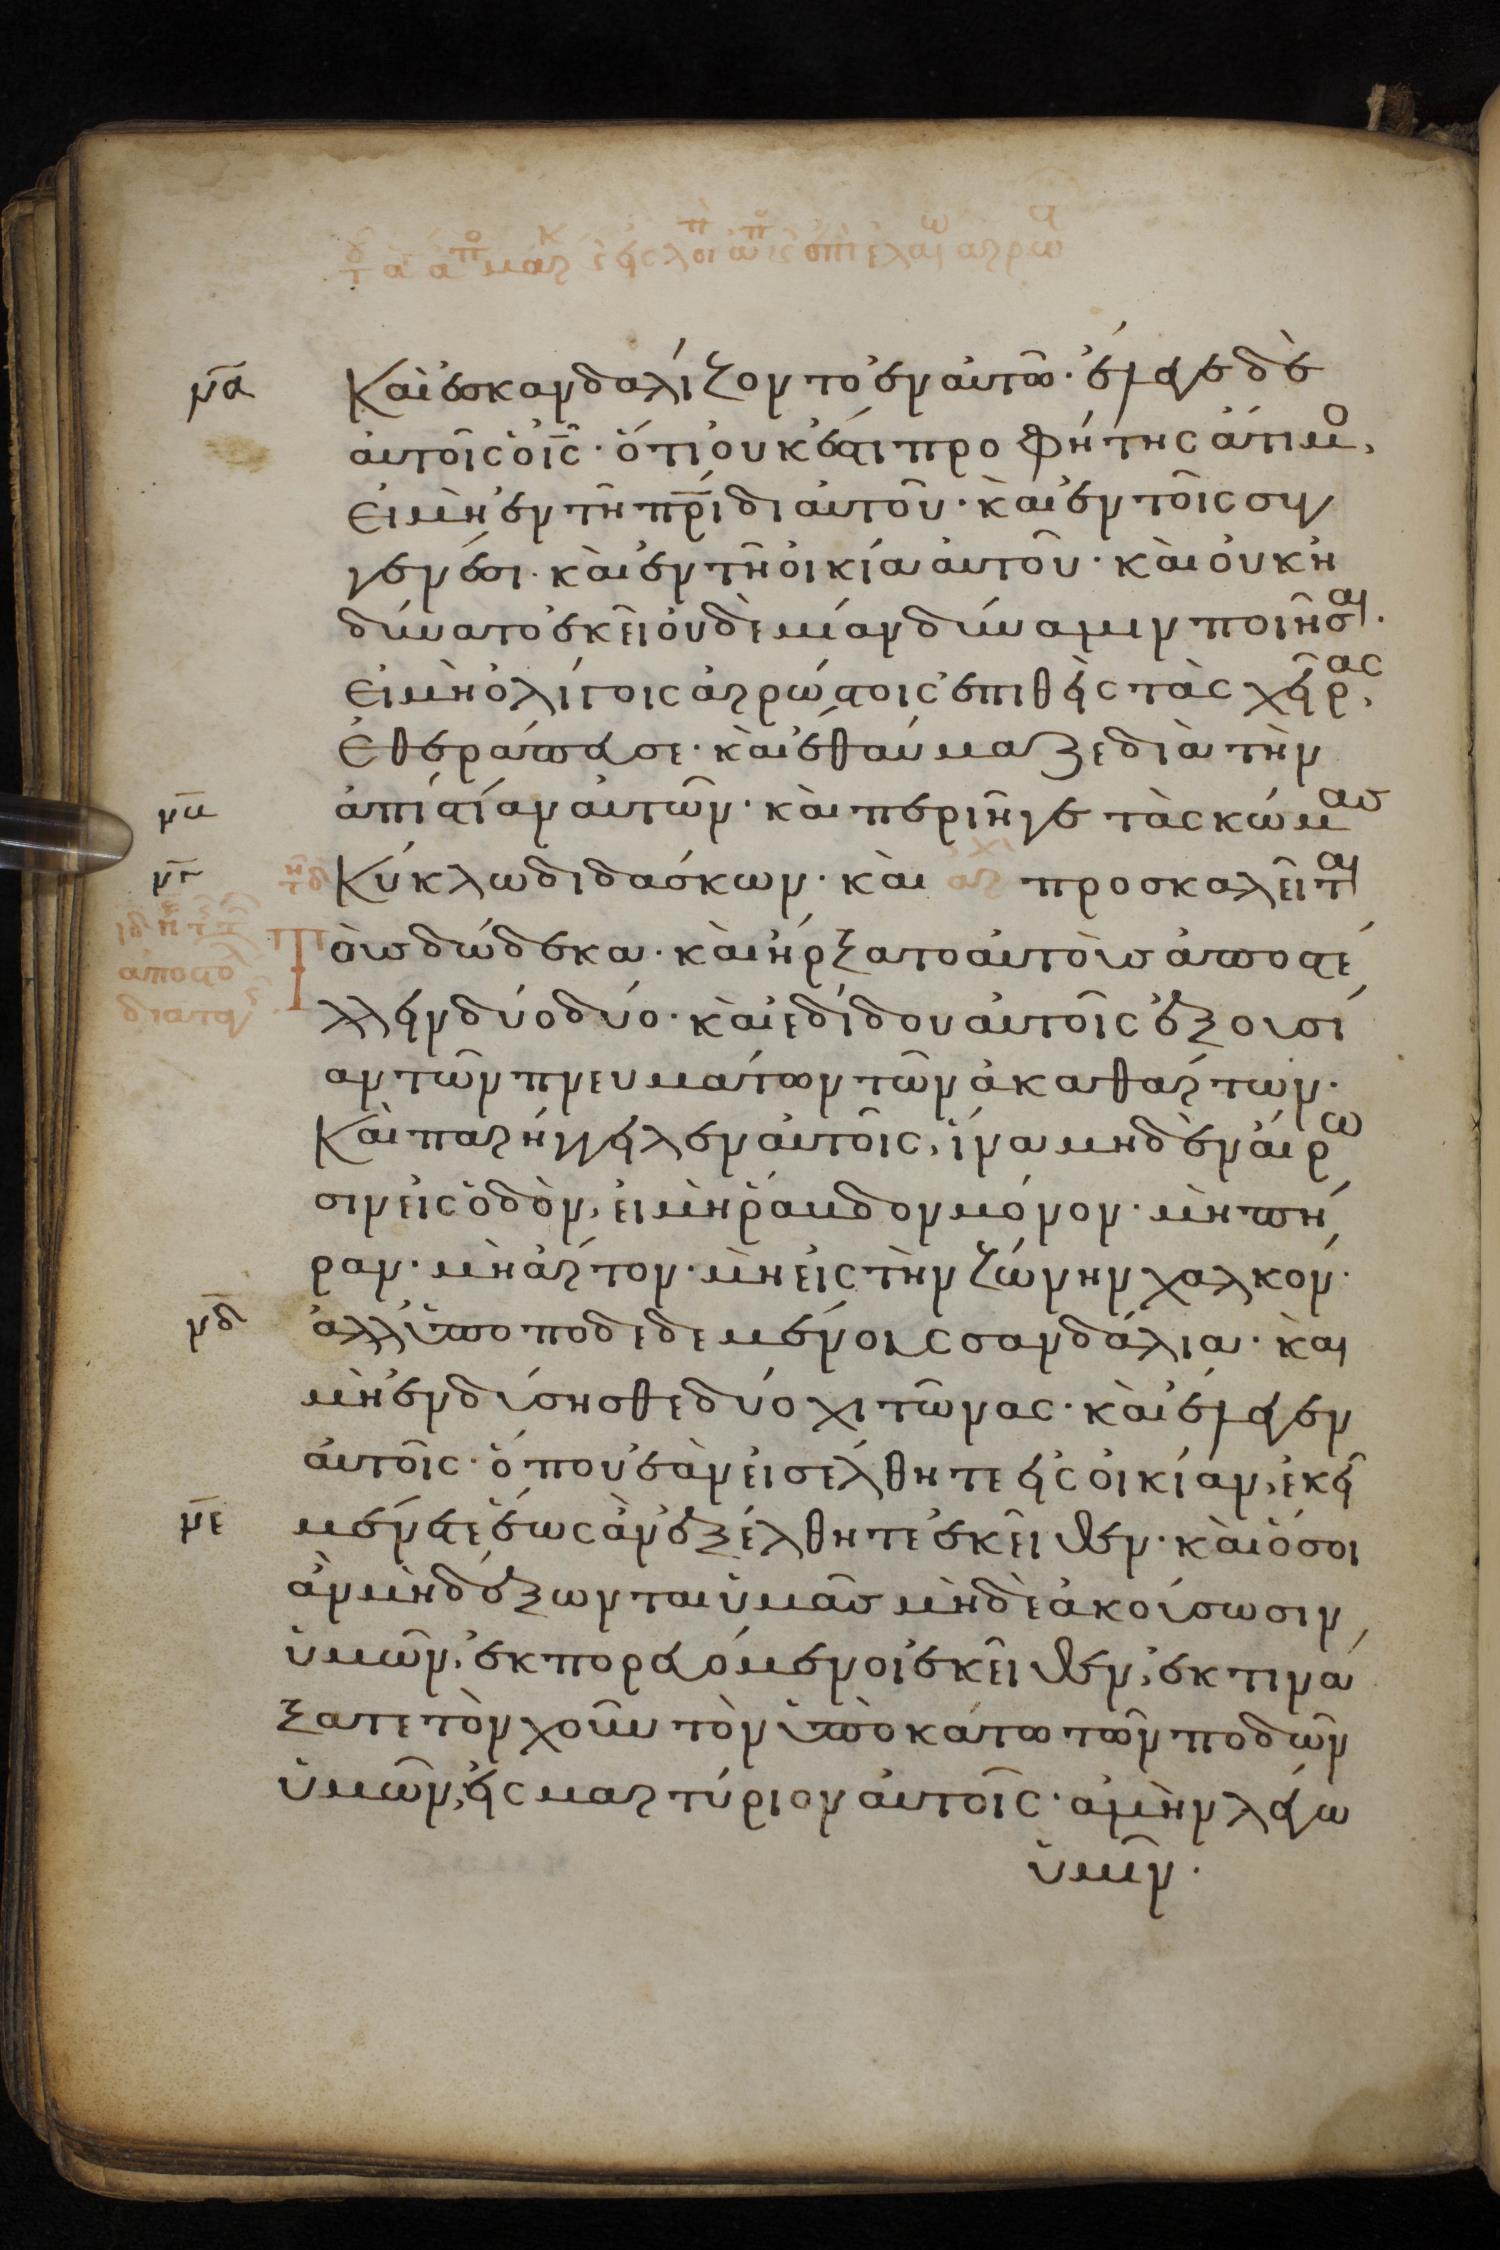 να
Καὶ ἐσκανδαλίζοντο ἐν αὐτῶ· ἔλεγε δὲ
αὐτοῖς ὁ ις̅· ὅτι οὐκ ἔστι προφήτης ἄτιμο,
εἰ μὴ ἐν τῆ πρ̅ίδι αὐτοῦ· καὶ ἐν τοῖς συγ
γενέσι· καὶ ἐν τῆ οἰκία αὐτοῦ· καὶ οὐκ ἠ
δύνατο ἐκεῖ οὐδὲ μίαν δύναμιν ποιῆσαι·
εἰ μὴ ὀλίγοις ἀρρώστοις ἐπιθεὶς τὰς χεῖρας,
ἐθεράπευσε· καὶ ἐθαύμαζε διὰ τὴν
ἀπιστίαν αὐτῶν· καὶ περιῆγε τὰς κώμας
Κύκλω διδάσκων· καὶ προσκαλεῖται
Τοὺς δώδεκα· καὶ ἤρξατο αὐτοὺς ἀποστέ
λλειν δύο δύο· καὶ ἐδίδου αὐτοῖς ἐξουσί
αν τῶν πνευμάτων τῶν ἀκαθάρτων·
Καὶ παρήγγειλεν αὐτοῖς, ἵνα μηδὲν αἴρω
σιν εἰς ὁδὸν, εἰ μὴ ῥάβδον μόνον· μὴ πή
ραν· μὴ ἄρτον· μὴ εἰς τὴν ζώνην χαλκόν·
νδ
ἀλλ' ὑποποδεδεμένους σανδάλια· καὶ
μὴ ἐνδύσησθε δύο χιτῶνας· καὶ ἔλεγεν
αὐτοῖς· ὅπου ἐὰν εἰσέλθητε εἰς οἰκίαν, ἐκεῖ
νε
μένετε ἕως ἂν ἐξέλθητε ἐκεῖθεν· καὶ ὅσοι
ἂν μὴ δέξωνται ὑμᾶς μηδὲ ἀκούσωσιν
ὑμῶν, ἐκπορευόμενοι ἐκεῖθεν, ἐκτινά
ξατε τὸν χοῦν τὸν ὑποκάτω τῶν ποδῶν
ὑμῶν, εἰς μαρτύριον αὐτοῖς· ἀμὴν λέγω
ὑμῖν·